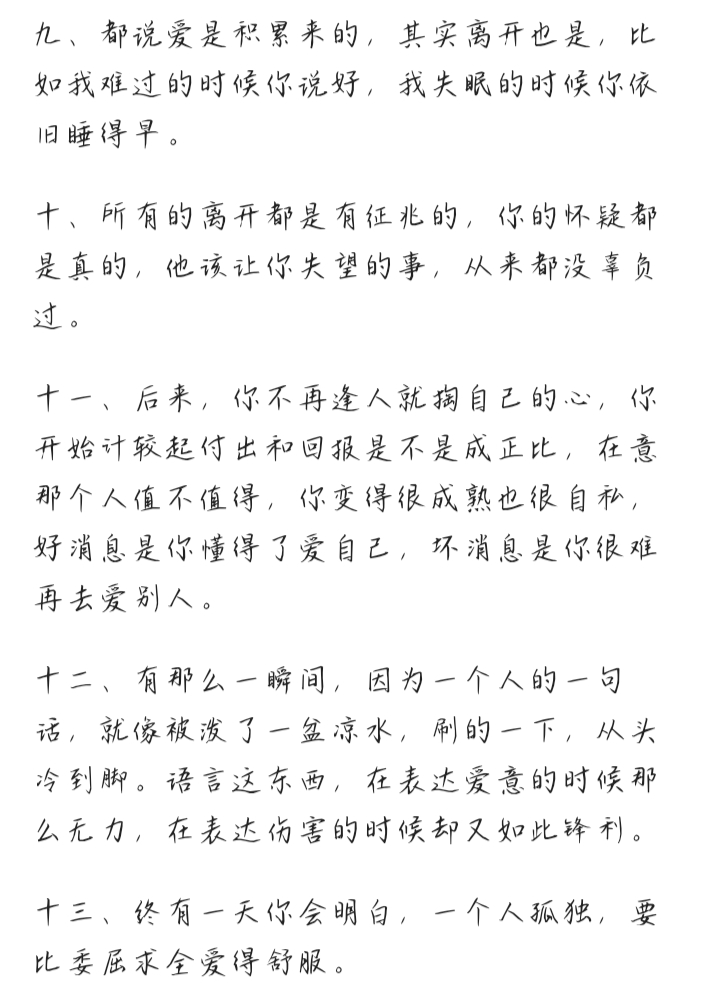 九、都说爱是积累来的，其实离开也是，比
如我难过的时候你说好，我失眠的时候你依
旧睡得早。
十、所有的离开都是有征兆的，你的怀疑都
是真的，他该让你失望的事，从来都没辜负
过。
十一、后来，你不再逢人就掏自己的心，你
开始计较起付出和回报是不是成正比，在意
那个人值不值得，你变得很成熟也很自私，
好消息是你懂得了爱自己，坏消息是你很难
再去爱别人。
十二、有那么一瞬间，因为一个人的一句
话，就像被泼了一盆凉水，刷的一下，从头
冷到脚。语言这东西，在表达爱意的时候那
么无力，在表达伤害的时候却又如此锋利。
十三、终有一天你会明白，一个人孤独，要
比委屈求全爱得舒服。